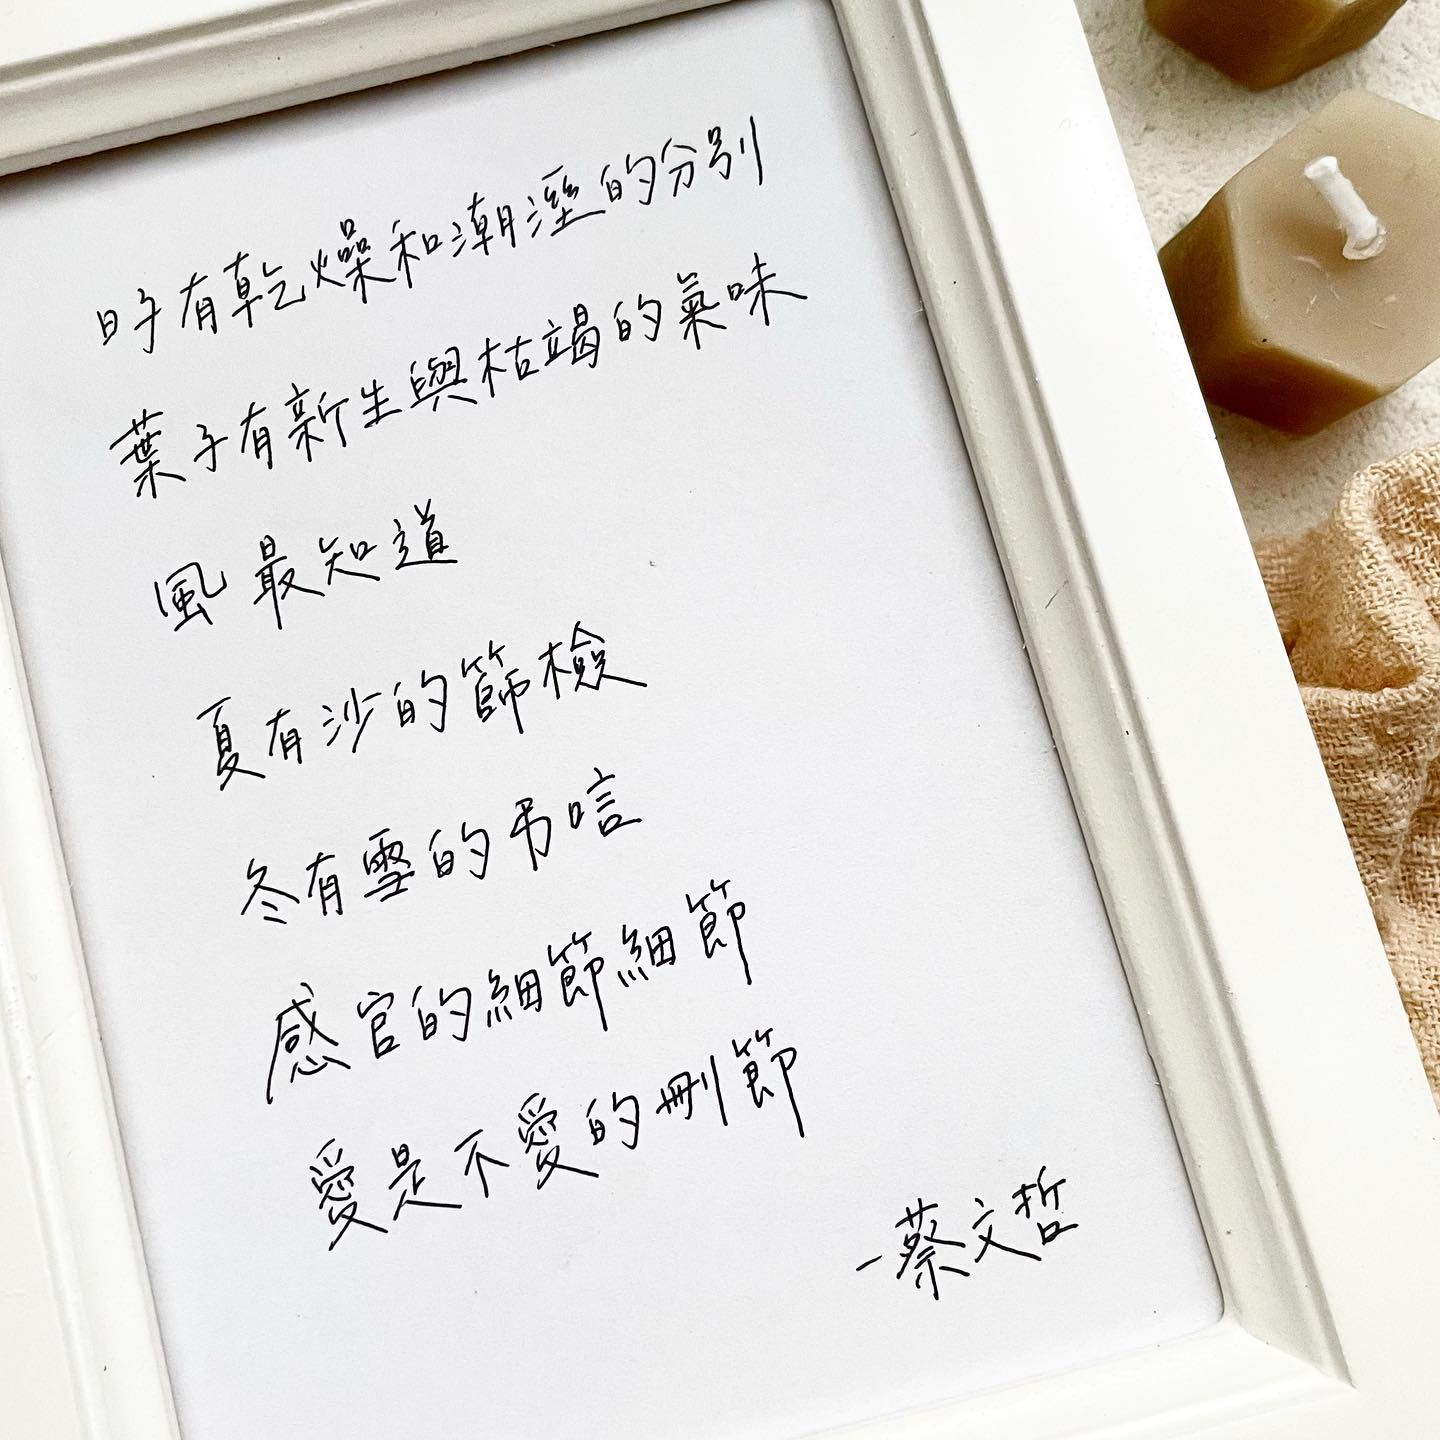 日子有乾燥和潮溼的分別
葉子有新生與枯竭的氣味
風最知道
夏有沙的篩檢
冬有雪的弔唁
感官的細節細節
愛是不愛的刪節
-蔡文哲